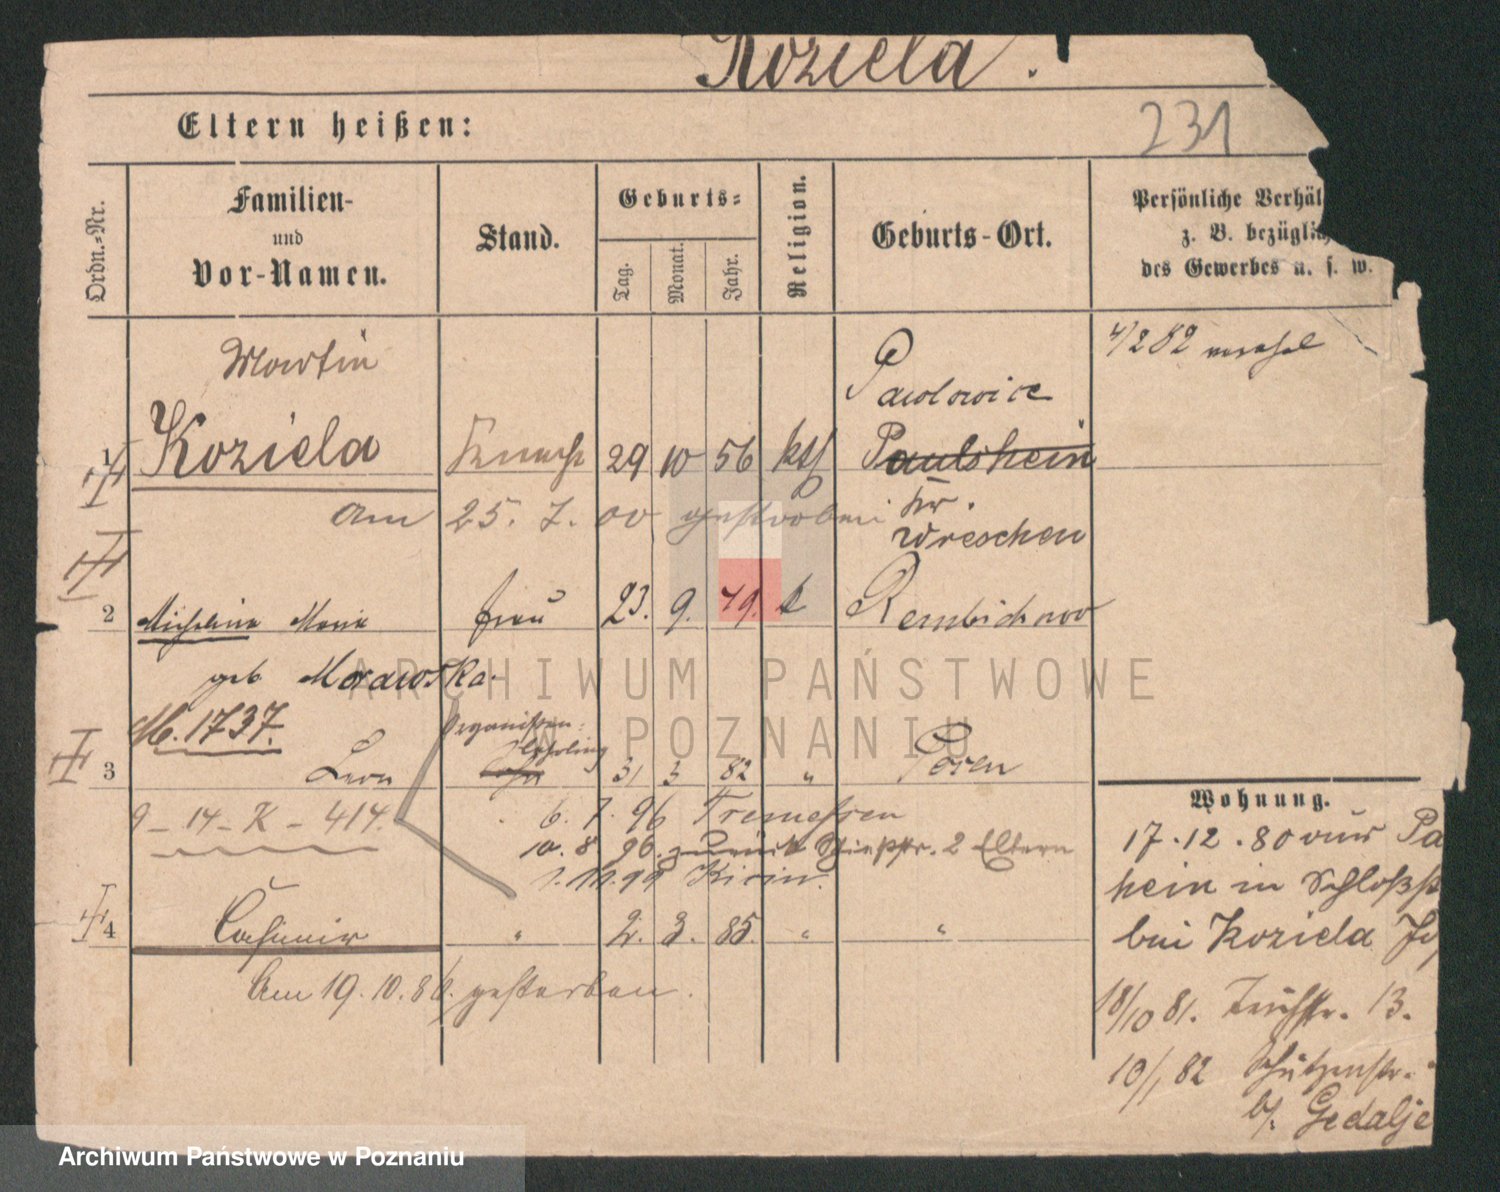 Koziela.
Eltern heißen:
231
Ordn.-Nr.
Familien-
und
Vor-Namen.
Stand.
Geburts-
Tag.
Monat.
Jahr.
Religion.
Geburts-Ort.
Persönliche Verhäl
z. B. bezüglich
des Gewerbes u. s. w.
Martin
1 Koziela Knecht 29 10 56 kth
Pawlowice
Paulshein
Kr.
Wreschen
4/2 82
am 25. 7. 00 gestorben
2 Michalina Maria Frau 23. 9. 49. k Rembichowo
geb Morawska.
M. 1737.
Organisten-
lehrling
3 Leon Sohn 31 3 82 " Posen
9 - 14 - K - 414.
6. 7. 96 Tremessen
10. 8 96. zurück Schießstr. 2 Eltern
1. 11. 99
4 Casimir " 2. 3. 85. " "
Am 19. 10. 86. gestorben.
Wohnung.
17.12.80 von Pa
hein in Schloßst
bei Koziela
18/10 81. 13.
10/1 82 Schützenstr.
b/. Gedalje
ARCHIWUM PAŃSTWOWE
W POZNANIU
Archiwum Państwowe w Poznaniu